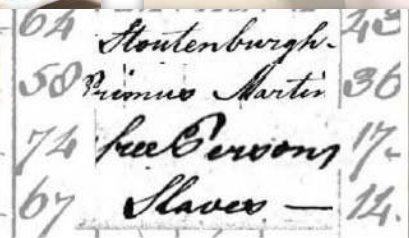 64 Stoutenburgh. 43
58 Primus Martin 36
74 free Persons 17-
67 Slaves — 14.